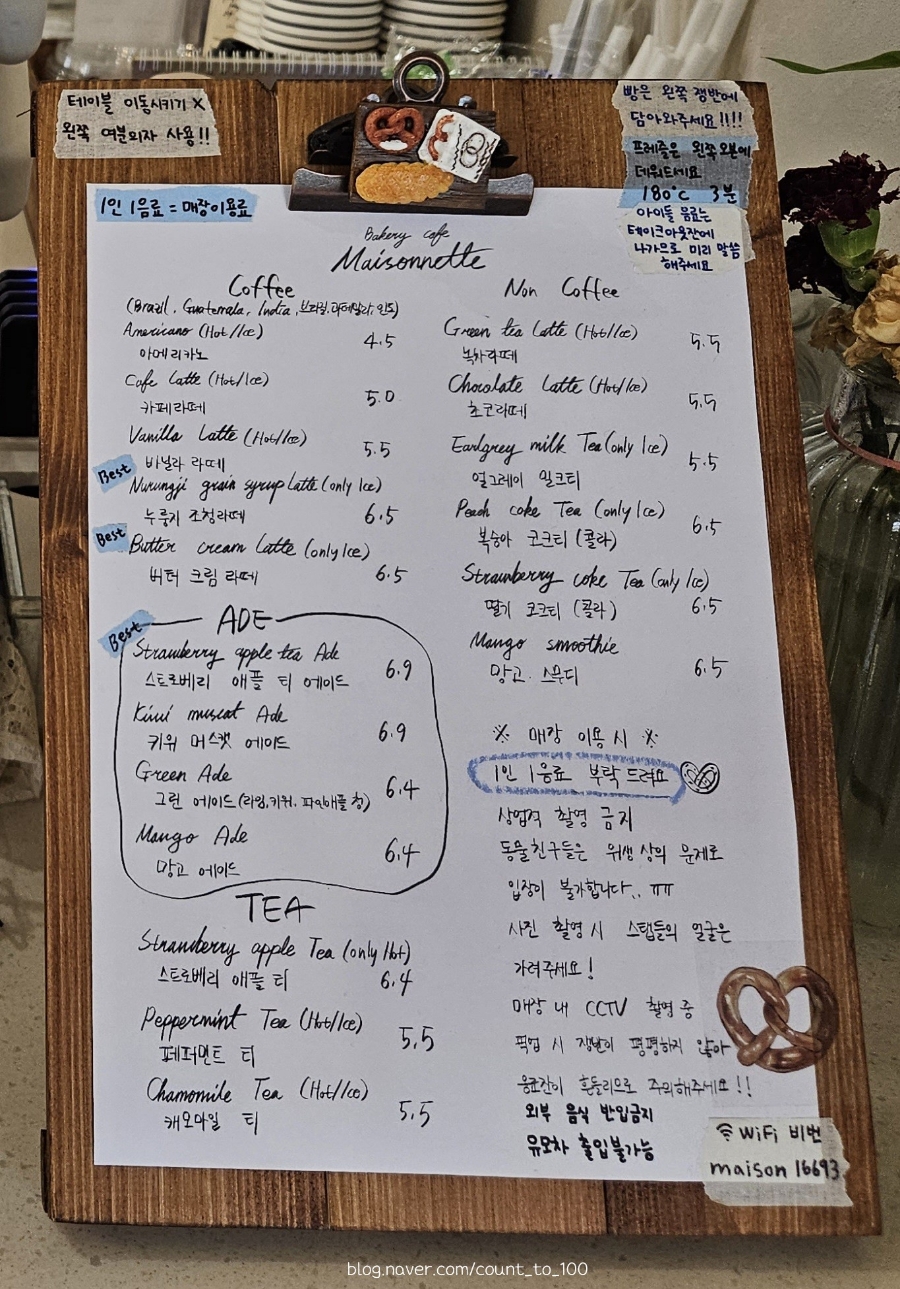 테이블 이동시키기 X
왼쪽 여분의자 사용!!
빵은 왼쪽 쟁반에
담아와주세요!!!!
프레즐은 왼쪽 오븐에
데워드세요
180°C 3분
아이들 음료는
테이크아웃잔에
나가므로 미리 말씀
해주세요
1인 1음료 = 매장이용료
Bakery cafe
Maisonnette
Coffee
(Brazil, Guatemala, India, 브라질, 과테말라, 인도)
Americano (Hot/Ice)
아메리카노 4.5
Cafe Latte (Hot/Ice)
카페라떼 5.0
Vanilla Latte (Hot/Ice)
바닐라 라떼 5.5
Best
Nurungji grain syrup Latte (only Ice)
누룽지 조청라떼 6.5
Best
Butter cream Latte (only Ice)
버터 크림 라떼 6.5
Best
ADE
Strawberry apple tea Ade
스트로베리 애플 티 에이드 6.9
Kiwi muscat Ade
키위 머스캣 에이드 6.9
Green Ade
그린 에이드 (라임, 키위, 파인애플 청) 6.4
Mango Ade
망고 에이드 6.4
TEA
Strawberry apple Tea (only Hot)
스트로베리 애플 티 6.4
Peppermint Tea (Hot/Ice)
페퍼민트 티 5.5
Chamomile Tea (Hot/Ice)
캐모마일 티 5.5
Non Coffee
Green tea Latte (Hot/Ice)
녹차라떼 5.5
Chocolate Latte (Hot/Ice)
초코라떼 5.5
Earlgrey milk Tea (only Ice)
얼그레이 밀크티 5.5
Peach coke Tea (only Ice)
복숭아 코크티 (콜라) 6.5
Strawberry coke Tea (only Ice)
딸기 코크티 (콜라) 6.5
Mango smoothie
망고 스무디 6.5
※ 매장 이용 시 ※
1인 1음료 부탁드려요
상업적 촬영 금지
동물친구들은 위생상의 문제로
입장이 불가합니다.. ㅠㅠ
사진 촬영 시 스탭들의 얼굴은
가려주세요!
매장 내 CCTV 촬영 중
픽업 시 쟁반이 평평하지 않아
음료잔이 흔들리므로 주의해주세요!!
외부 음식 반입금지
유모차 출입불가능
WiFi 비번
maison16693
blog.naver.com/count_to_100